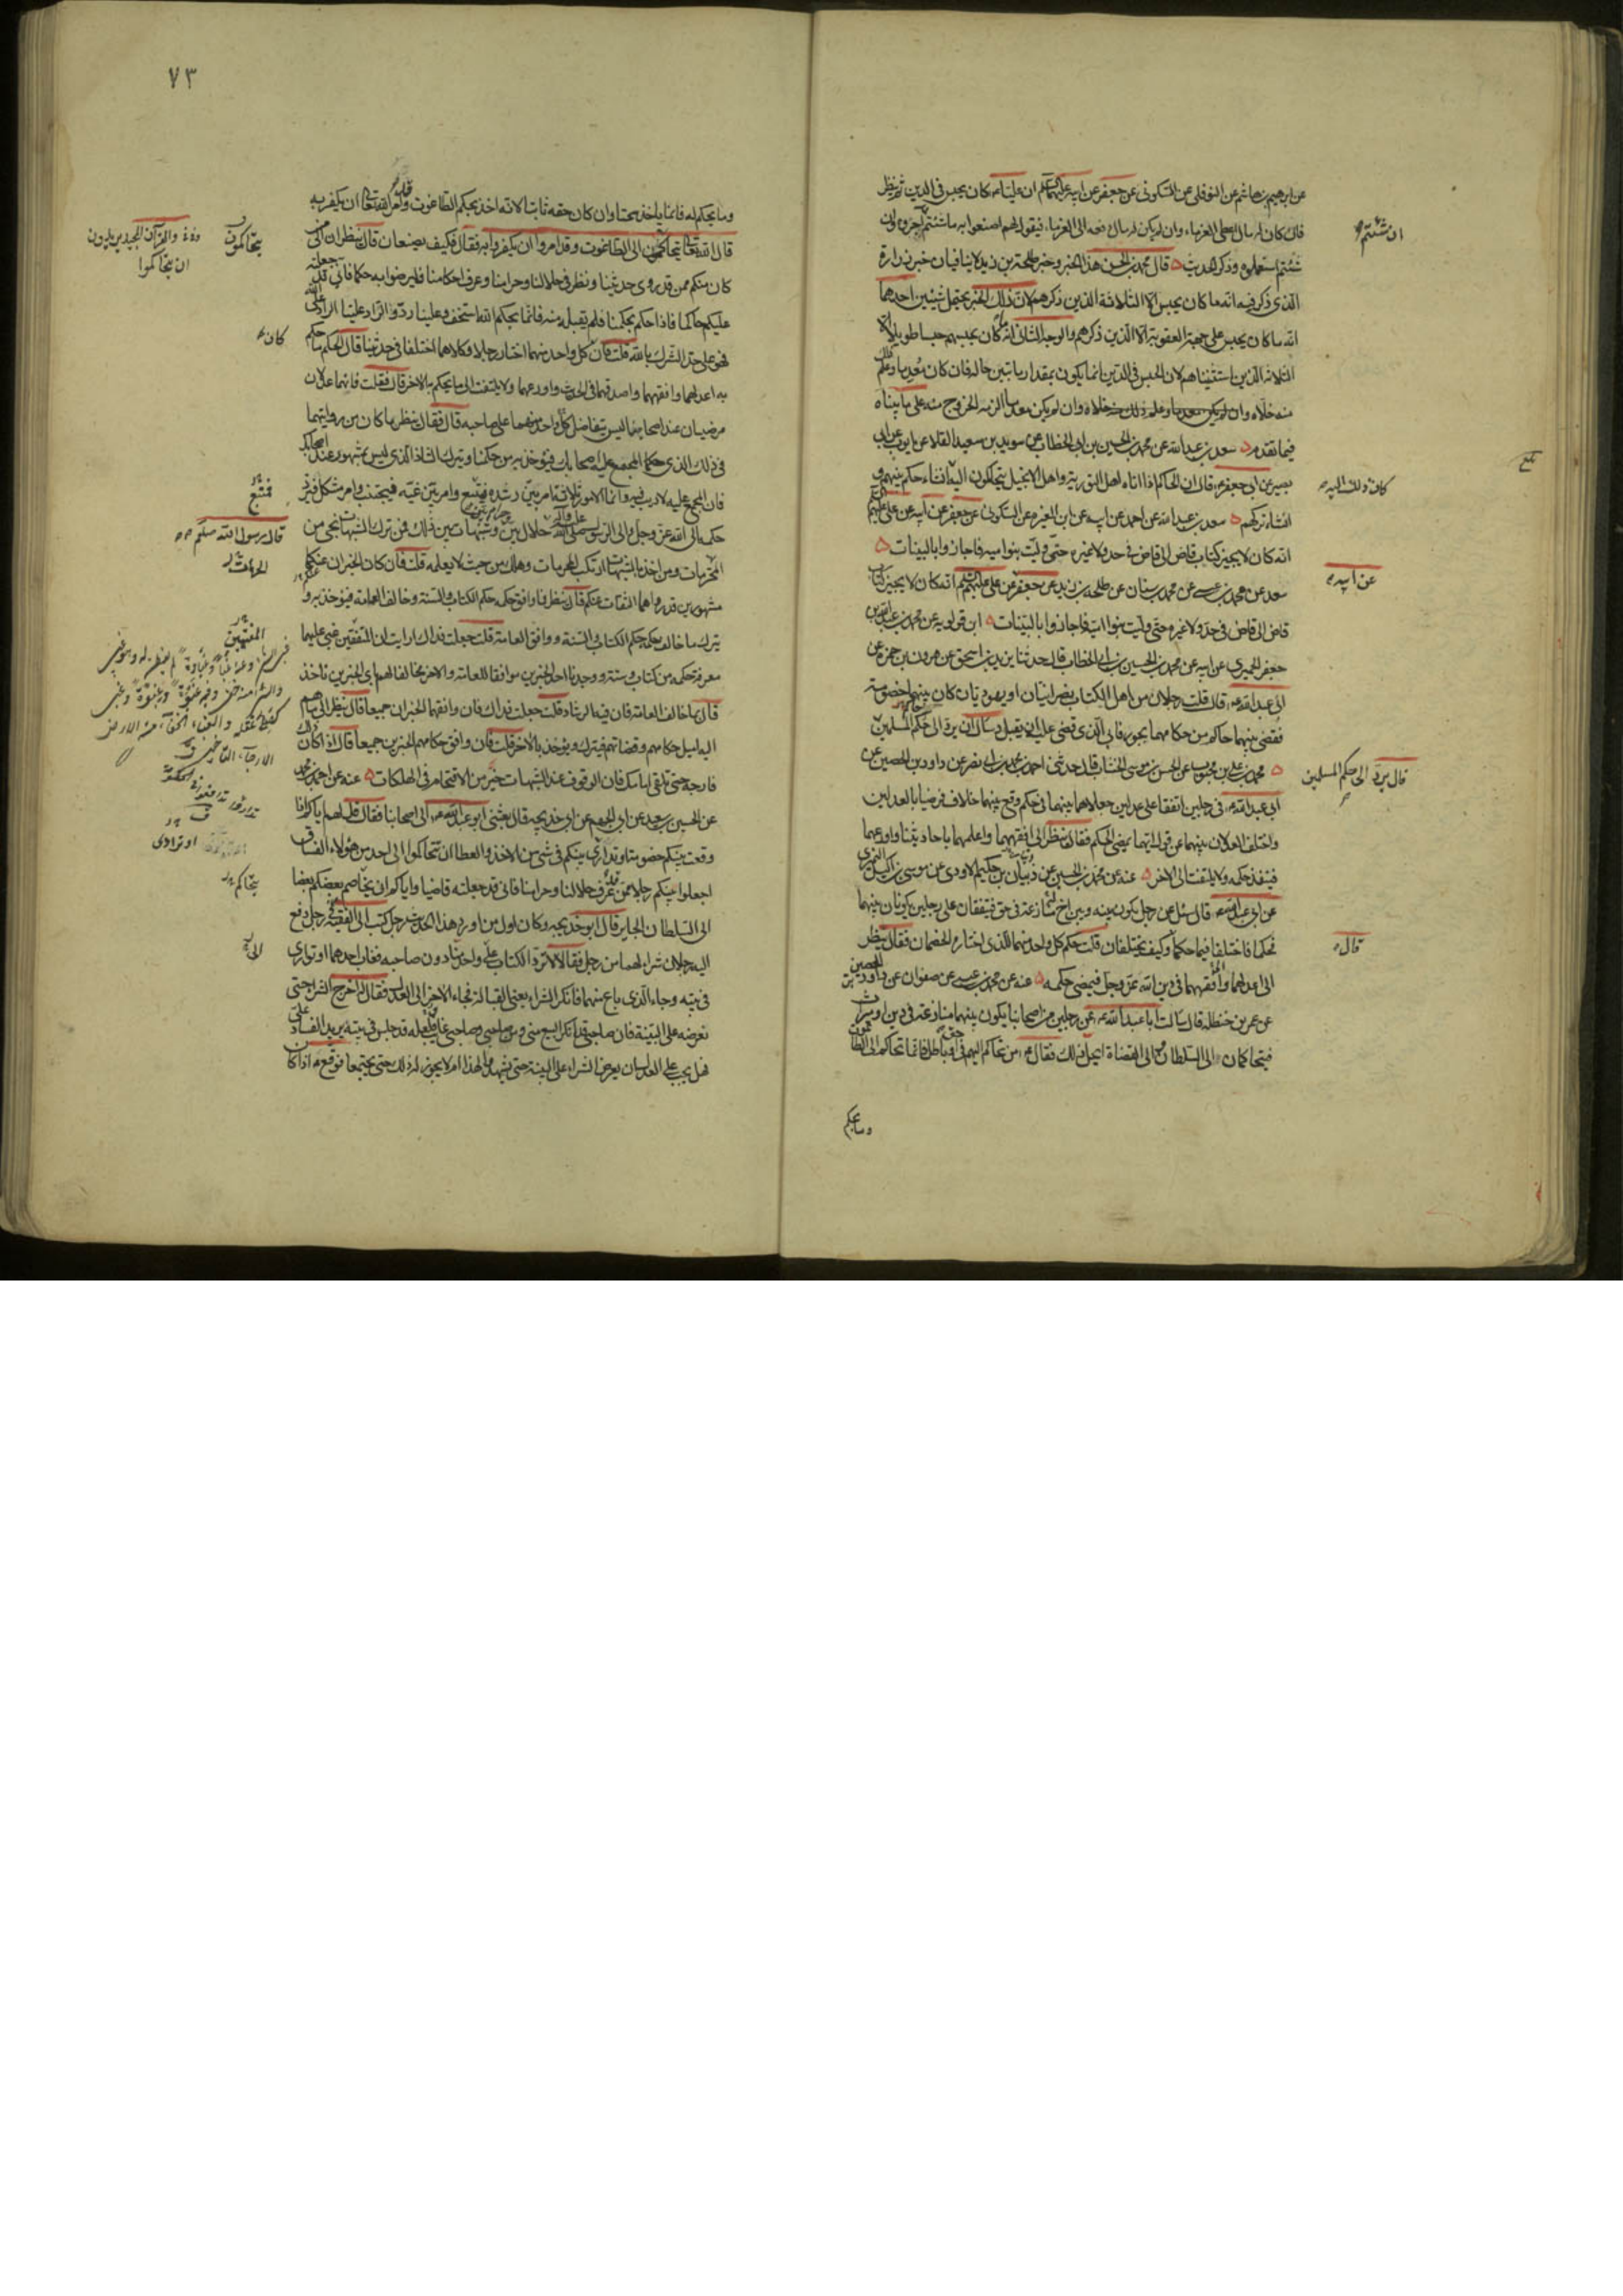 عن ابرهيم بن هاشم عن النوفلى عن السكونى عن جعفر عن ابيه عليهما السلم ان عليا ع كان يحبس فى الدين ثم ينظر
فان كان له مال اعطى الغرماء وان لم يكن له مال دفعه الى الغرماء فيقول لهم اصنعوا به ما شئتم ان شئتم اجروه وان
شئتم استعملوه وذكر الحديث قال محمد بن الحسن هذا الخبر وخبر طلحة بن زيد لا ينافيان خبر زرارة
الذى ذكر فيه انه ما كان يحبس الا الثلاثة الذين ذكرهم لان ذلك الخبر يحتمل شيئين احدهما
انه ما كان يحبس على جهة العقوبة الا الذين ذكرهم والوجه الثانى انه ما كان يحبسهم حبسا طويلا الا
الثلاثة الذين استثنيناهم لان الحبس فى الدين انما يكون بمقدار ما يتبين حاله فان كان معدما وعلم ذلك
منه خلاه وان لم يكن معدما الزمه الخروج منه على ما بيناه
فيما تقدم سعد بن عبد الله عن محمد بن الحسين بن ابى الخطاب عن سويد بن سعيد القلا عن ايوب عن ابى
بصير عن ابى جعفر ع قال ان الحاكم اذا اتاه اهل التورية واهل الانجيل يتحاكمون اليه ان شاء حكم بينهم و
ان شاء تركهم سعد بن عبد الله عن احمد عن ابيه عن ابن المغيرة عن السكونى عن جعفر عن ابيه عن على عليهم
انه كان لا يجيز كتاب قاض الى قاض فى حد ولا غيره حتى وليت بنو امية فاجازوا بالبينات
سعد عن محمد بن عيسى عن محمد بن سنان عن طلحة بن زيد عن جعفر عن على عليهم السلم انه كان لا يجيز كتاب
قاض الى قاض فى حد ولا غيره حتى وليت بنو امية فاجازوا بالبينات ابن قولويه عن محمد بن عبد الله بن
جعفر الحميرى عن ابيه عن محمد بن الحسين بن ابى الخطاب قال حدثنا يزيد بن اسحق عن هرون بن حمزة عن
ابى عبد الله ع قال قلت رجلان من اهل الكتاب نصرانيان او يهوديان كان بينهما خصومة
فقضى بينهما حاكم من حكامهما بجور فابى الذى قضى عليه ان يقبل وسال ان يرد الى حكم المسلمين
محمد بن على بن محبوب عن الحسن بن موسى الخشاب قال حدثنى احمد بن محمد بن ابى نصر عن داود بن الحصين عن
ابى عبد الله ع فى رجلين اتفقا على عدلين جعلاهما بينهما فى حكم وقع بينهما خلاف فرضيا بالعدلين
واختلف العدلان بينهما عن قول ايهما يمضى الحكم فقال ينظر الى افقههما واعلمهما باحاديثنا واورعهما
فينفذ حكمه ولا يلتفت الى الاخر عنه عن محمد بن الحسين عن ذبيان بن حكيم الاودى عن موسى بن اكيل النميرى
عن ابى عبد الله ع قال سئل عن رجل يكون بينه وبين اخ له منازعة فى حق فيتفقان على رجلين يكونان بينهما
فحكما فاختلفا فيما حكما وكيف يختلفان قلت حكم كل واحد منهما للذى اختاره الخصمان فقال ينظر
الى اعدلهما وافقههما فى دين الله عز وجل فيمضى حكمه عنه عن محمد بن عيسى عن صفوان عن داود بن الحصين
عن عمر بن حنظلة قال سالت ابا عبد الله ع عن رجلين من اصحابنا يكون بينهما منازعة فى دين او ميراث
فيتحاكمان الى السلطان او الى القضاة ايحل ذلك فقال ع من تحاكم اليهم فى حق او باطل فانما تحاكم الى الطاغوت
وما يحكم
ان شئتم
كان ذلك اليه
عن ابيه
قال يرد الى حكم المسلمين
قال
٧٣
وما يحكم له فانما ياخذ سحتا وان كان حقه ثابتا لانه اخذ بحكم الطاغوت وقد امر الله تعالى ان يكفر به
قال الله تعالى يتحاكمون الى الطاغوت وقد امروا ان يكفروا به فقال فكيف يصنعان قال ينظران الى من
كان منكم ممن قد روى حديثنا ونظر فى حلالنا وحرامنا وعرف احكامنا فليرضوا به حكما فانى قد جعلته
عليكم حاكما فاذا حكم بحكمنا فلم يقبله منه فانما بحكم الله استخف وعلينا رد والراد علينا الراد على الله
فهو على حد الشرك بالله قلت فان كل واحد منهما اختار رجلا وكلاهما اختلفا فى حديثنا قال الحكم ما حكم
به اعدلهما وافقههما واصدقهما فى الحديث واورعهما ولا يلتفت الى ما يحكم به الاخر قال فقلت فانهما عدلان
مرضيان عند اصحابنا ليس يتفاضل كل واحد منهما على صاحبه قال فقال ينظر ما كان من روايتهما
فى ذلك الذى حكما المجمع عليه اصحابك فيؤخذ به من حكمنا ويترك الشاذ الذى ليس بمشهور عند اصحابك
فان المجمع عليه لا ريب فيه وانما الامور ثلاثة امر بين رشده فيتبع وامر بين غيه فيجتنب وامر مشكل يرد
حكمه الى الله عز وجل والى الرسول صلى الله عليه وآله حلال بين وحرام بين وشبهات بين ذلك فمن ترك الشبهات نجى من
المحرمات ومن اخذ بالشبهات ارتكب المحرمات وهلك من حيث لا يعلم قلت فان كان الخبران عنكما
مشهورين قد رواهما الثقات عنكم قال ينظر فما وافق حكمه حكم الكتاب والسنة وخالف العامة فيؤخذ به و
يترك ما خالف حكمه حكم الكتاب والسنة ووافق العامة قلت جعلت فداك ارايت ان المفتيين غبى عليهما
معرفة حكمه من كتاب وسنة ووجدنا احد الخبرين موافقا للعامة والاخر مخالفا لهم باى الخبرين ناخذ
قال بما خالف العامة فان فيه الرشاد قلت جعلت فداك فان وافقهما الخبران جميعا قال ينظر الى ما هم
اليه اميل حكامهم وقضاتهم فيترك ويؤخذ بالاخر قلت فان وافق حكامهم الخبرين جميعا قال اذا كان ذلك
فارجه حتى تلقى امامك فان الوقوف عند الشبهات خير من الاقتحام فى الهلكات عنه عن احمد بن محمد
عن الحسين بن سعيد عن ابى الجهم عن ابى خديجه قال بعثنى ابو عبد الله ع الى اصحابنا فقال قل لهم اياكم اذا
وقعت بينكم خصومة او تدارى بينكم فى شئ من الاخذ والعطا ان تتحاكموا الى احد من هؤلاء الفساق
اجعلوا بينكم رجلا ممن قد عرف حلالنا وحرامنا فانى قد جعلته قاضيا واياكم ان يخاصم بعضكم بعضا
الى السلطان الجاير قال ابو خديجه وكان اول من اورد هذا الحديث رجل كتب الى الفقيه ع فى رجل دفع
اليه رجلان شراء لهما من رجل فقالا لا ترد الكتاب على واحد منا دون صاحبه فغاب احدهما او توارى
فى بيته وجاء الذى باع منهما فانكر الشراء يعنى القبالة فجاء الاخر الى العدل فقال له اخرج الشراء حتى
نعرضه على البينة فان صاحبى قد انكر البيع منى ومن صاحبى وصاحبى غايب فلعله قد جلس فى بيته يريد الفساد على
فهل يجب على العدل ان يعرض الشراء على البينة حتى يشهدوا لهذا ام لا يجوز له ذلك حتى يجتمعا فوقع ع اذا كان
يتحاكمون
والقرآن المجيد يريدون
ان يتحاكموا
كان
فيتبع
قال رسول الله صلعم
المفتيين
او تدارى
يتحاكم